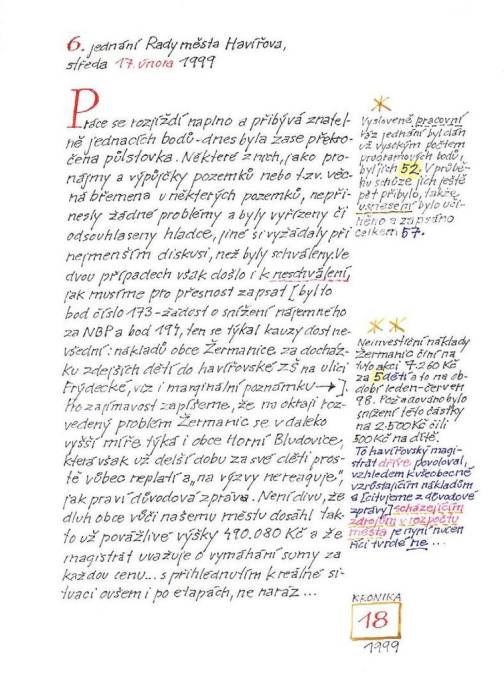 6. jednání Rady města Havířova,
středa 17. února 1999
Práce se rozjíždí naplno a přibývá znatel-
ně jednacích bodů - dnes byla zase překro-
čena půlstovka. Některé z nich, jako pro-
nájmy a výpůjčky pozemků nebo tzv. věc-
ná břemena u některých pozemků, nepři-
nesly žádné problémy a byly vyřízeny či
odsouhlaseny hladce, jiné si vyžádaly při
nejmenším diskusi, než byly schváleny. Ve
dvou případech však došlo i k neschválení,
jak musíme pro přesnost zapsat [bylto
bod číslo 173 - žádost o snížení nájemného
za NBP a bod 194, ten se týkal kauzy dost ne-
všední: nákladů obce Žermanice za docház-
ku zdejších dětí do havířovské ZŠ na ulici
Frýdecké, viz i marginální poznámku →].
Pro zajímavost zapíšeme, že na oktaji roz-
vedený problém Žermanic se v daleko
vyšší míře týká i obce Horní Bludovice,
která však už delší dobu za své děti pros-
tě vůbec neplatí a „na výzvy nereaguje“,
jak praví důvodová zpráva. Není divu, že
dluh obce vůči našemu městu dosáhl tak-
to už povážlivé výšky 490.080 Kč a že
magistrát uvažuje o vymáhání sumy za
každou cenu... s přihlédnutím k reálné si-
tuaci ovšem i po etapách, ne naráz ...
*
Vysloveně pracovní
ráz jednání byl dán
už vysokým počtem
programových bodů,
byl jich 52. V průbě-
hu schůze jich ještě
pět přibylo, takže
usnesení bylo uči-
něno a zapsáno
celkem 57.
**
Neinvestiční náklady
Žermanic činí na
tuto akci 7.260 Kč
za 5 dětí a to na ob-
dobí leden-červen
98. Požadováno bylo
snížení této částky
na 2.500 Kč čili
500 Kč na dítě.
To havířovský magi-
strát dříve povoloval,
vzhledem k všeobecně
vzrůstajícím nákladům
a [citujeme z důvodové
zprávy] scházejícím
zdrojům v rozpočtu
města je nyní nucen
říci tvrdé ne ...
KRONIKA
18
1999